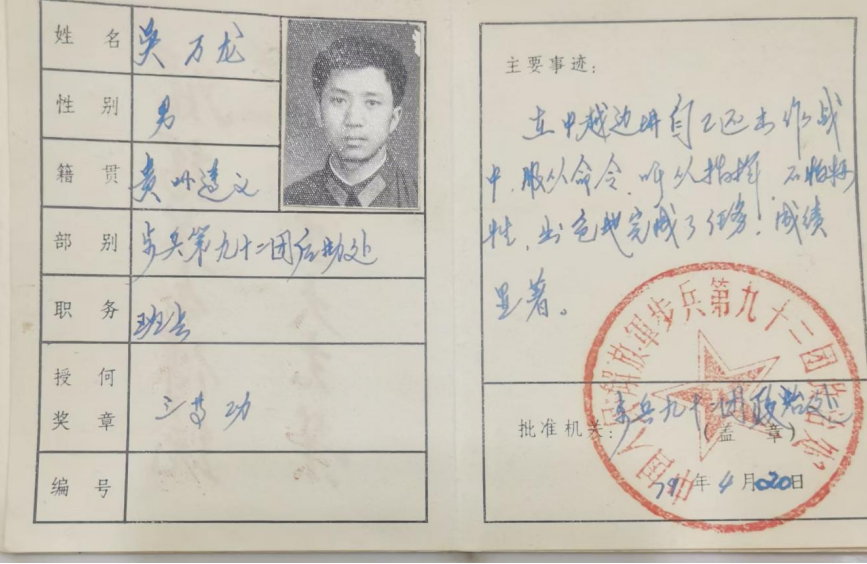 姓名 吴万龙
性别 男
籍贯 贵州遵义
部别 步兵第九十二团后勤处
职务 班长
授何奖章 三等功
编号
主要事迹：
在中越边界自卫还击作战
中，服从命令，听从指挥，不怕牺
牲，出色地完成了任务，成绩
显著。
批准机关：步兵九十二团政治处
（盖章）
79年4月20日
中国人民解放军步兵第九十二团